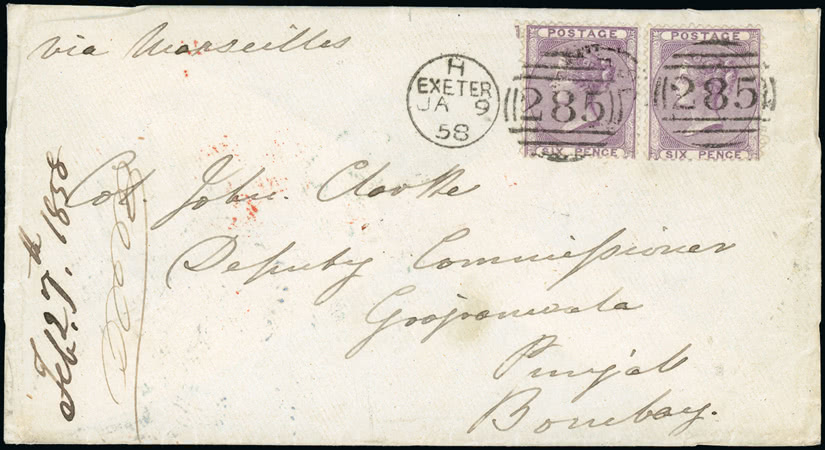 via Marseilles
H
EXETER
JA 9
58
POSTAGE
285
SIX PENCE
POSTAGE
285
SIX PENCE
Col. John Clarke
Deputy Commissioner
Goojranwala
Punjab
Bombay.
Feb. 27th. 1858